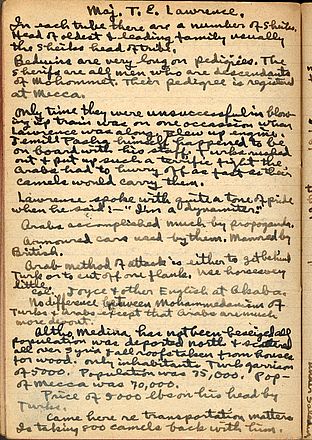 Maj. T. E. Lawrence.
In each tribe there are a number of Sheiks.
Head of oldest & leading family usually
the Sheiks head of tribe.
Bedwins are very long on pedigrees. The
Sherifs are all men who are descendants
of Mohammet. Their pedigree is registered
at Mecca.
Only time they were unsuccessful in blow-
ing up train was on one occasion when
Lawrence was along. Blew up engine.
Jemil Pasha himself happened to be
on board with his staff. Turks rushed
out & put up such a terrific fight the
Arabs had to hurry off as fast as their
camels would carry them.
Lawrence spoke with quite a tone of pride
when he said:- "I'm a dynamiter."
Arabs accomplished much by propoganda.
Armoured cars used by them. Manned by
British.
Arab method of attack is either to get behind
Turk or to cut off one flank. Use horses very
little.
Col. Joyce & other English at Akaba.
No difference between Mohammedanism of
Turks & Arabs except that Arabs are much
more devout.
Altho Medina has not been beseiged all
population was deported north & scattered
all over Syria & all roofs taken from houses
for wood. Only inhabitants Turk garrison
of 5000. Population was 75,000. Pop-
of Mecca was 70,000.
Price of 5000 lbs on his head by
Turks.
Came here re transportation matters
Is taking 500 camels back with him.